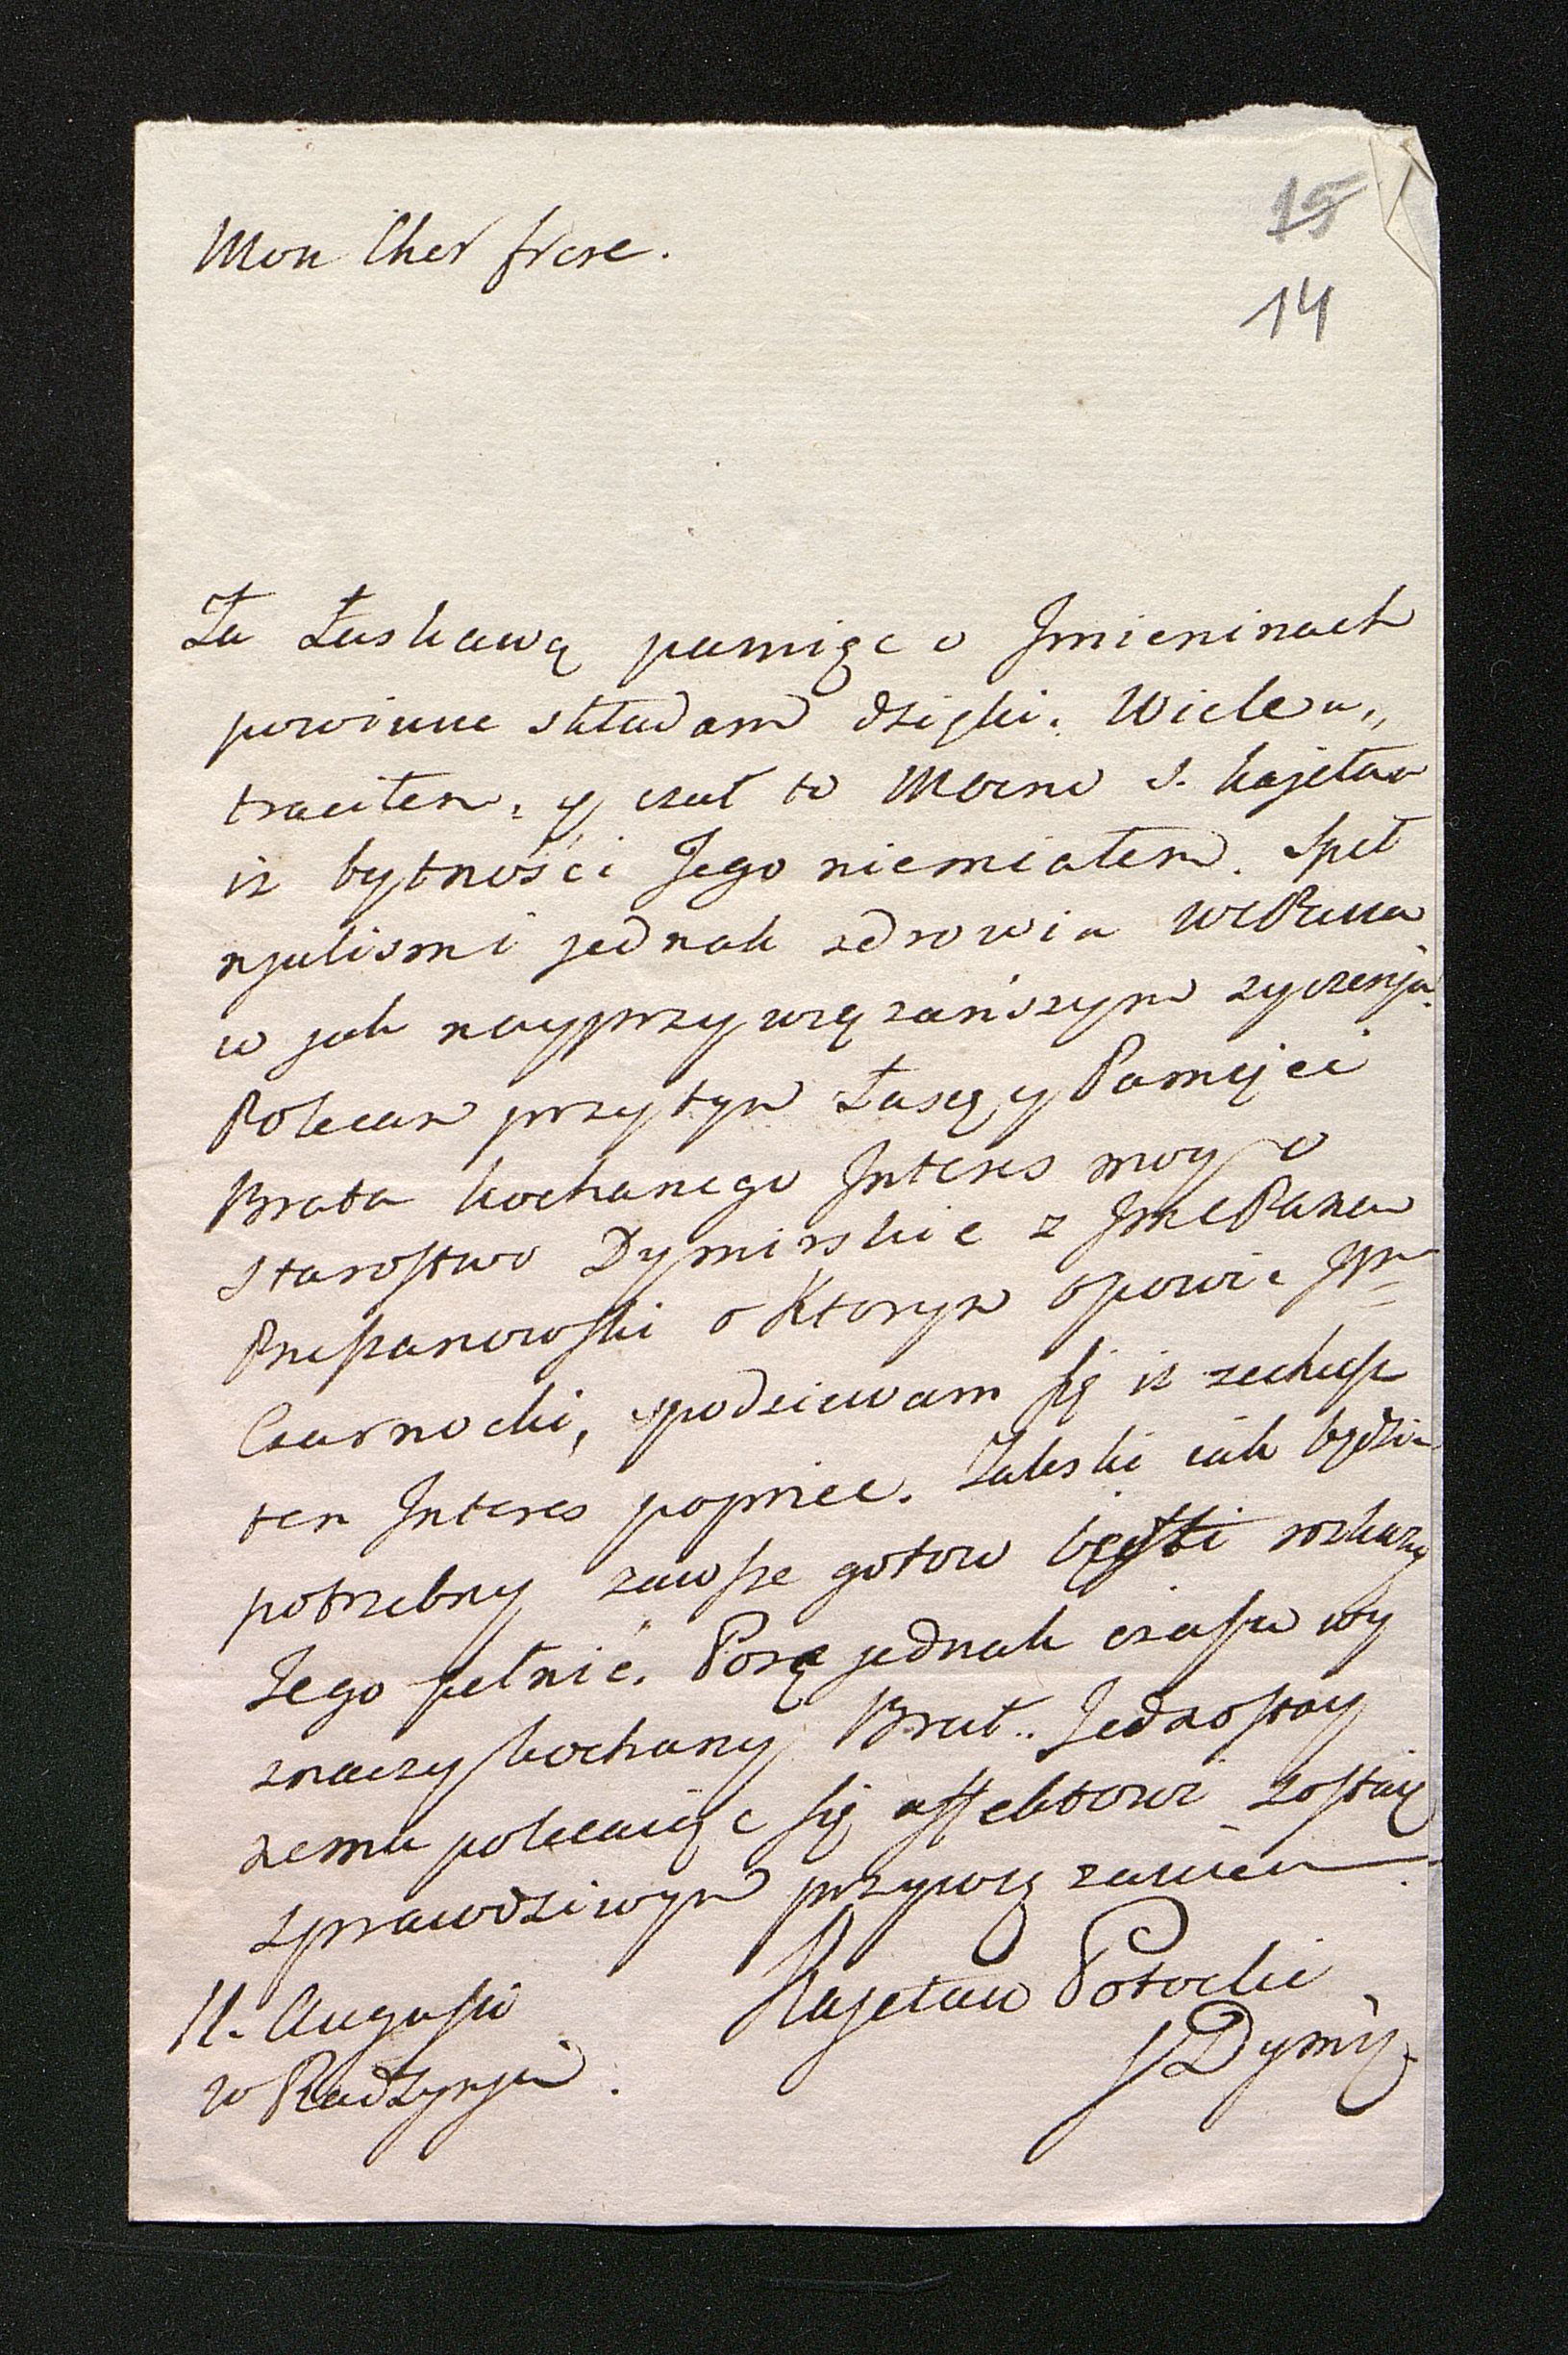 15
Mon Cher frere.
14
Za Łaskawą pamięc o Jmieninach
powinne składam dzięki. Wiele u„
traciłem, y czuł to Mocno S. kajetan
iz bytności Jego niemiałem. Speł
njalismi jednak zdrowia WCPana
w jak nayprzywięzańszym zyczenju.
Polecam przytym Łascę y Pamięci
Brata kochanego Jnteres moy o
Starostwo Dymirskie z JmcPanem
o Ktorym opowie JP
Czarnocki, spodziewam się iz zechcesz
ten Jnteres poprzec. Zaleski iak będzie
potrzebny zawsze gotow będzie rozkazy
Jego pełnić. Porę jednak czasu wy
znaczy kochany Brat.
zemu polecaiąc się affektowi zostaię
z prawdziwym przywięzaniem
Kajetan Potocki
S Dymi
11. Augusti
w Radzynju.